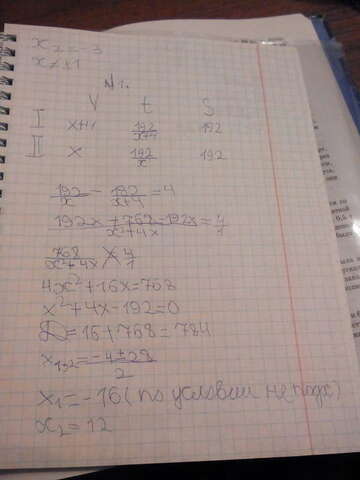 x₂ = -3
x ≠ ±1
№1.
V t S
I x+4 192/x+4 192
II x 192/x 192
192/x - 192/x+4 = 4
192x + 768 - 192x/x²+4x = 4/1
768/x²+4x 4/1
4x² + 16x = 768
x² + 4x - 192 = 0
D = 16 + 768 = 784
x₁,₂ = -4±28/2
x₁ = -16 (по условии не подх)
x₂ = 12